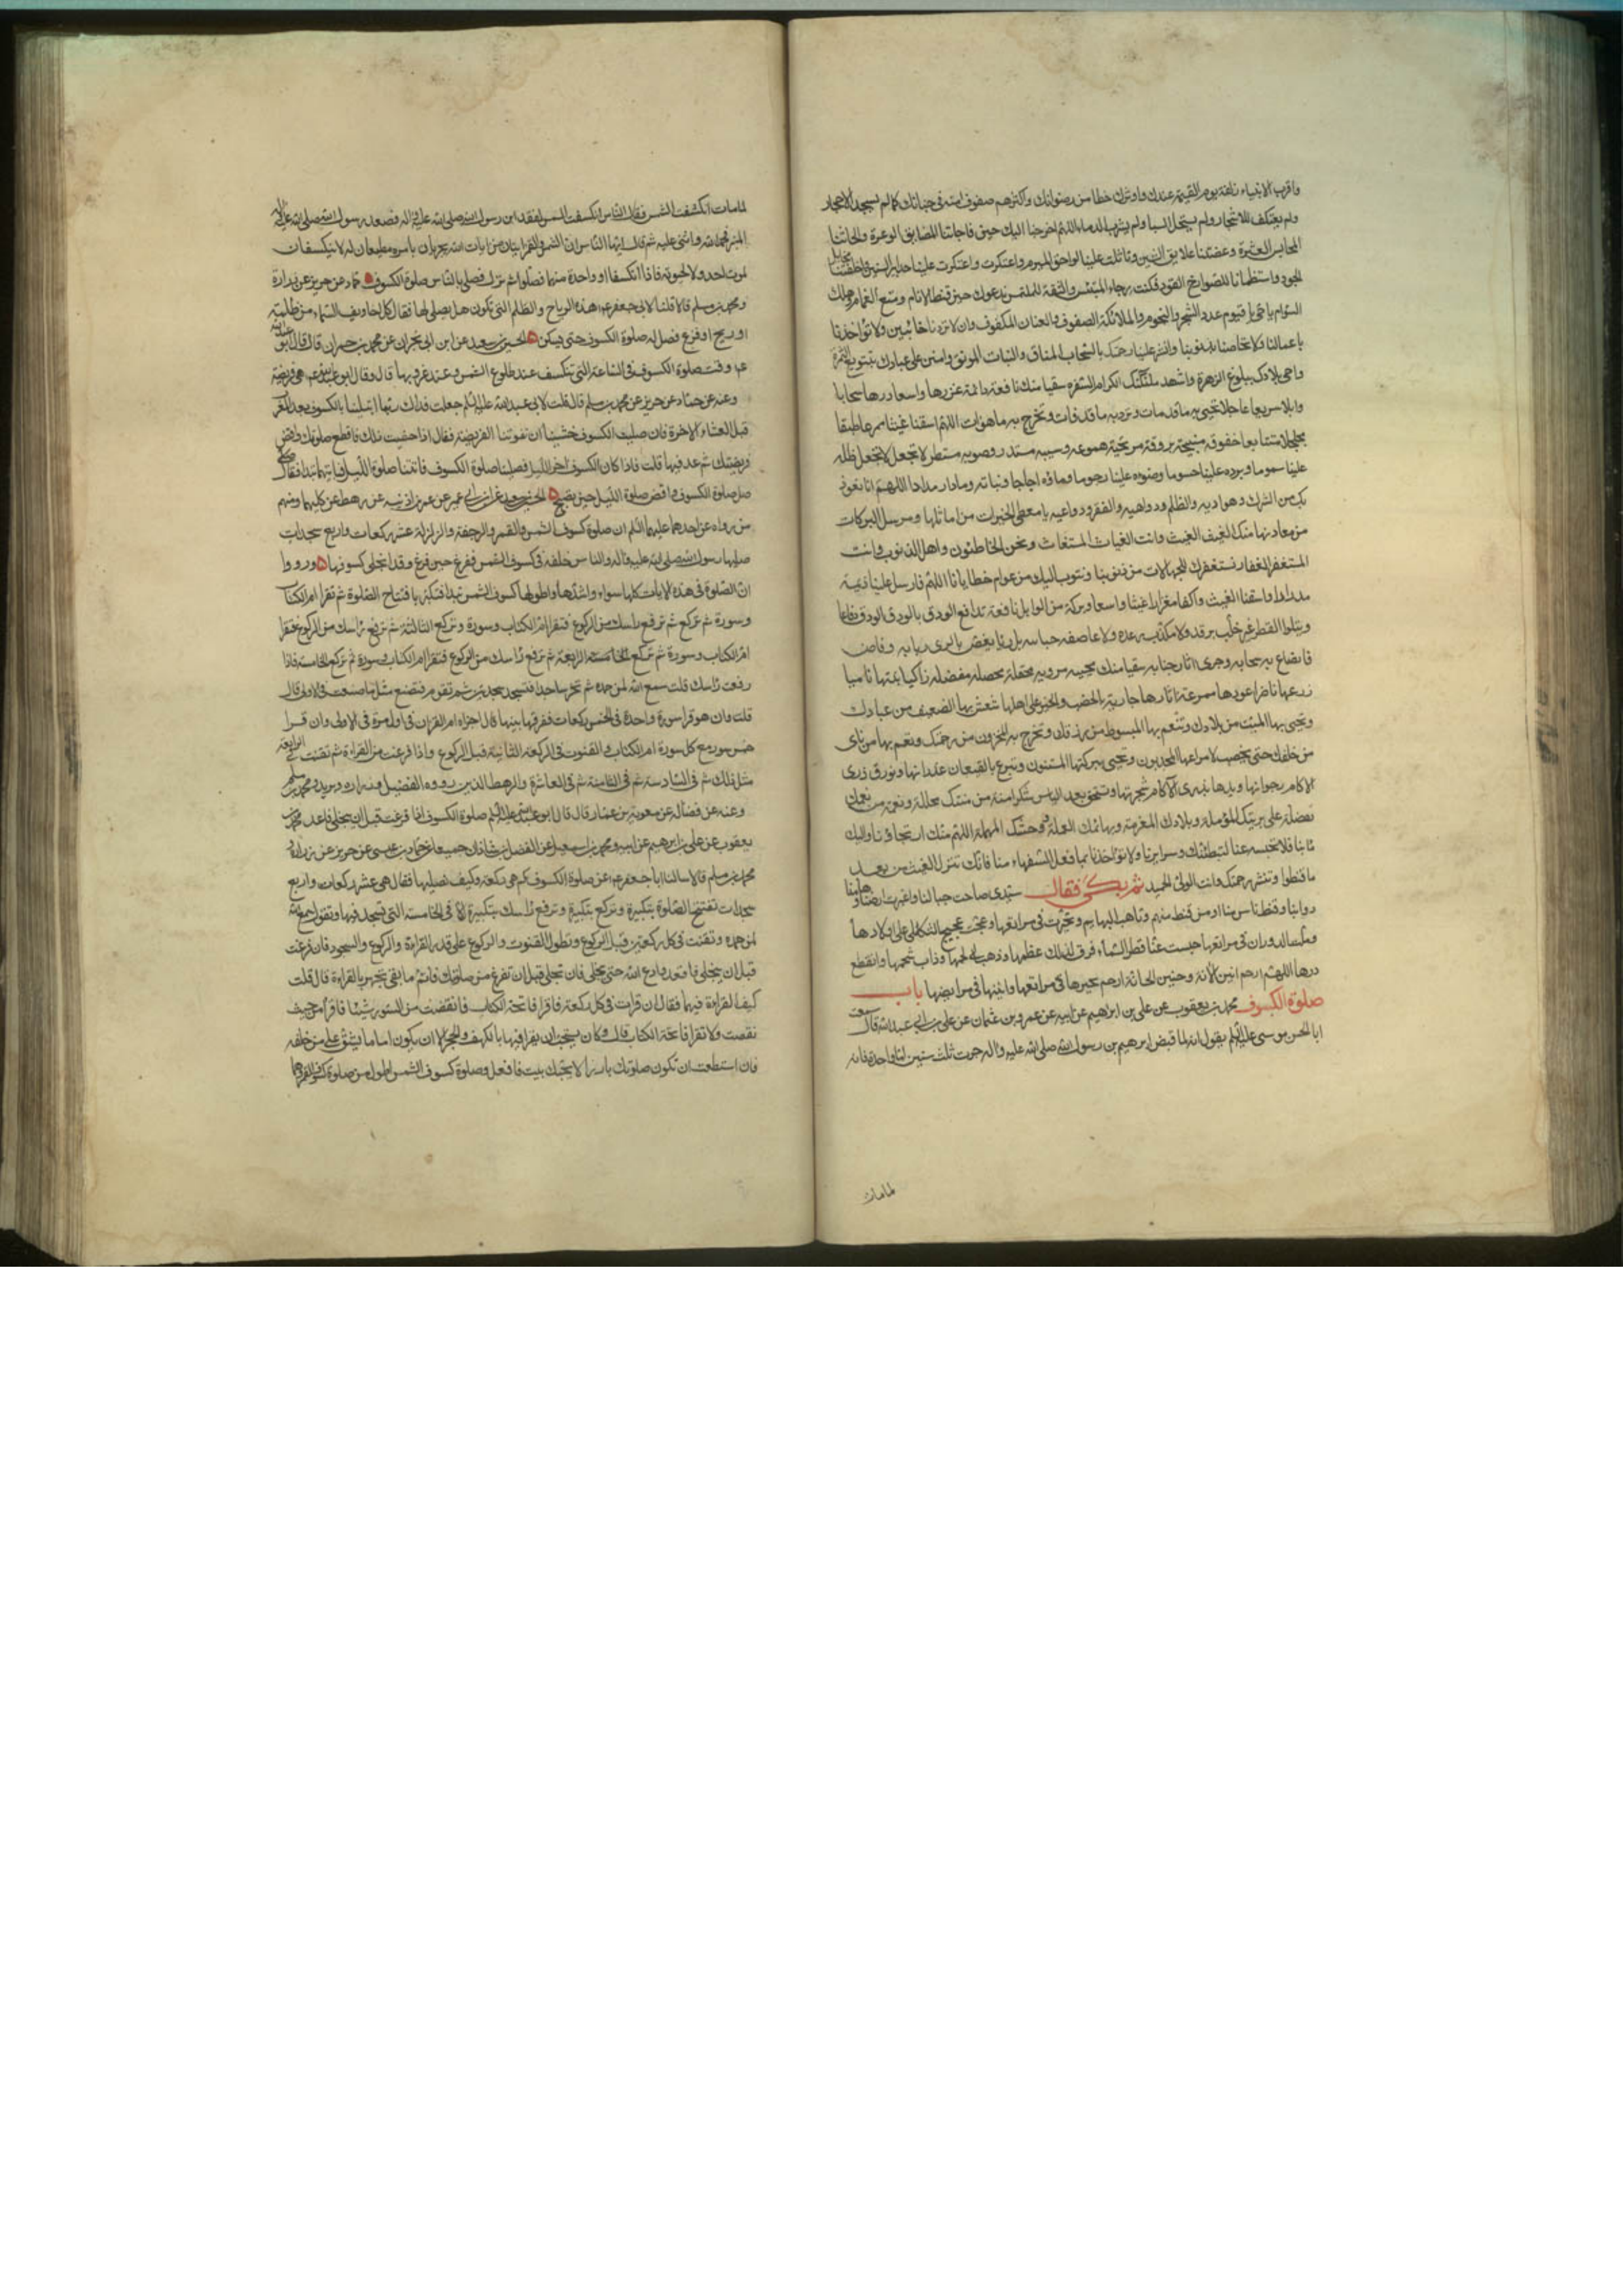 واقرب الانبياء زلفة يوم القيمة عندك واوفرك حظا من رضوانك واكثرهم صفوف امته في جناتك كما لم يسجد للاحجار
ولم يعتكف للاشجار ولم يستحل السبا ولم يشرب الدماء اللهم خرجنا اليك حين فاجأتنا المضايق الوعرة والجأتنا
المحابس العسرة وعضتنا علايق الشين وتاثلت علينا لواحق المين واعتكرت علينا حدابير السنين واخلفتنا مخايل
الجود واستظمأنا لصوارخ القود فكنت رجاء المبتئس والثقة للملتمس ندعوك حين قنط الانام ومنع الغمام وهلك
السوام يا حي يا قيوم عدد الشجر والنجوم والملائكة الصفوف والعنان المكفوف وان لا تردنا خائبين ولا تؤاخذنا
باعمالنا ولا تخاصنا بذنوبنا وانشر علينا رحمتك بالسحاب المتاق والنبات المونق وامنن على عبادك بتنويع الثمرة
واحي بلادك ببلوغ الزهرة واشهد ملائكتك الكرام السفرة سقيا منك نافعة دائمة غزرها واسعا درها سحابا
وابلا سريعا عاجلا تحيي به ما قد مات وترد به ما قد فات وتخرج به ما هو ات اللهم اسقنا غيثا ممرعا طبقا
مجلجلا متتابعا خفوقه منبجسة بروقه مرتجسة هموعه وسيبه مستدر وصوبه مستطر لا تجعل ظله
علينا سموما وبرده علينا حسوما وضوءه علينا رجوما وماءه اجاجا ونباته رمادا رمددا اللهم انا نعوذ
بك من الشرك وهواديه والظلم ودواهيه والفقر ودواعيه يا معطي الخيرات من اماكنها ومرسل البركات
من معادنها منك الغيث المغيث وانت الغياث المستغاث ونحن الخاطئون واهل الذنوب وانت
المستغفر الغفار نستغفرك للجهالات من ذنوبنا ونتوب اليك من عوام خطايانا اللهم فارسل علينا ديمة
مدرارا واسقنا الغيث واكفا مغزارا غيثا واسعا وبركة من الوابل نافعة تدافع الودق بالودق دفاعا
ويتلوا القطر غير خلب برقه ولا مكذب رعده ولا عاصفة جنائبه بل ريا يغص بالري ربابه وفاض
فانصاع به سحابه وجرى اثار جنابه سقيا منك محيية مروية محفلة مخضلة مفضلة زاكيا نبتها ناميا
زرعها ناضرا عودها ممرعة اثارها جارية بالخصب والخير على اهلها تنعش بها الضعيف من عبادك
وتحيي بها الميت من بلادك وتنعم بها المبسوط من رزقك وتخرج بها المخزون من رحمتك وتعم بها من ناى
من خلقك حتى يخصب لامراعها المجدبون ويحيي ببركتها المسنتون وتترع بالقيعان غدرانها وتورق ذرى
الاكام رجواتها ويدهام بذرى الاكام شجرتها وتستحق بعد الياس شكرا منة من مننك مجللة ونعمة من نعمك
مفضلة على بريتك المؤملة وبلادك المغرمة وبهائمك المعملة ووحشك المهملة اللهم منك ارتجاؤنا واليك
مابنا فلا تحبسه عنا لتبطنك سرايرنا ولا تؤاخذنا بما فعل السفهاء منا فانك تنزل الغيث من بعد
ما قنطوا وتنشر رحمتك وانت الولي الحميد ثم بكى فقال سيدي صاحت جبالنا واغبرت ارضنا وهامت
دوابنا وقنط ناس منا او من قنط منهم وتاهت البهايم وتحيرت في مراتعها وعجت عجيج الثكالى على اولادها
وملت الدوران في مراتعها حبست عنا قطر السماء فرق لذلك عظمها وذهب لحمها وذاب شحمها وانقطع
درها اللهم ارحم انين الانة وحنين الحانة ارحم تحيرها في مراتعها وانينها في مرابضها باب
صلوة الكسوف محمد بن يعقوب عن علي بن ابراهيم عن ابيه عن عمرو بن عثمان عن علي بن ابي عبدالله قال سمعت
ابا الحسن موسى عليه السلم يقول انه لما قبض ابرهيم بن رسول الله صلى الله عليه واله جرت ثلث سنين اما واحدة فانه
لمامات
لما مات انكسفت الشمس فقال الناس انكسفت الشمس لفقد ابن رسول الله صلى الله عليه واله فصعد رسول الله صلى الله عليه واله
المنبر فحمد الله واثنى عليه ثم قال ايها الناس ان الشمس والقمر ايتان من ايات الله يجريان بامره مطيعان له لا ينكسفان
لموت احد ولا لحيوته فاذا انكسفا او واحدة منهما فصلوا ثم نزل فصلى بالناس صلوة الكسوف حماد عن حريز عن زرارة
ومحمد بن مسلم قالا قلنا لابي جعفر ع هذه الرياح والظلم التي تكون هل يصلى لها فقال كل اخاويف السماء من ظلمة
او ريح او فزع فصل له صلوة الكسوف حتى يسكن الحسين بن سعيد عن ابن ابي نجران عن محمد بن حمران قال قال ابو عبدالله
ع وقت صلوة الكسوف في الساعة التي تنكسف عند طلوع الشمس وعند غروبها قال وقال ابو عبدالله ع هي فريضة
وعنه عن حماد عن حريز عن محمد بن مسلم قال قلت لابي عبدالله عليه السلم جعلت فداك ربما ابتلينا بالكسوف بعد المغرب
قبل العشاء الاخرة فان صليت الكسوف خشينا ان تفوتنا الفريضة فقال اذا خشيت ذلك فاقطع صلوتك واقض
فريضتك ثم عد فيها قلت فاذا كان الكسوف اخر الليل فصلينا صلوة الكسوف فاتتنا صلوة الليل فبايتهما نبدا فقال
صل صلوة الكسوف واقض صلوة الليل حين تصبح الحسين بن سعيد عن ابن ابي عمير عن عمر بن اذينه عن رهط عن كليهما ومنهم
من رواه عن احدهما عليهما السلم ان صلوة كسوف الشمس والقمر والرجفة والزلزلة عشر ركعات واربع سجدات
صليها رسول الله صلى الله عليه واله والناس خلفه في كسوف الشمس ففرغ حين فرغ وقد انجلى كسوفها ورووا
ان الصلوة في هذه الايات كلها سواء واشدها واطولها كسوف الشمس تبدا فتكبر بافتتاح الصلوة ثم تقرا ام الكتاب
وسورة ثم تركع ثم ترفع راسك من الركوع فتقرا ام الكتاب وسورة وتركع الثالثة ثم ترفع راسك من الركوع فتقرا
ام الكتاب وسورة ثم تركع الرابعة ثم ترفع راسك من الركوع فتقرا ام الكتاب وسورة ثم تركع الخامسة فاذا
رفعت راسك قلت سمع الله لمن حمده ثم تخر ساجدا فتسجد سجدتين ثم تقوم فتصنع مثل ما صنعت في الاولى قال
قلت وان هو قرا سورة واحدة في الخمس ركعات ففرقها بينها قال اجزاه ام القران في اول مرة في الاولى وان قرا
خمس سور مع كل سورة ام الكتاب والقنوت في الركعة الثانية قبل الركوع واذا فرغت من القراءة ثم تقنت في الرابعة
مثل ذلك ثم في السادسة ثم في الثامنة ثم في العاشرة والرهط الذين رووه الفضيل وزراره وبريد ومحمد بن مسلم
وعنه عن فضالة عن معوية بن عمار قال قال ابو عبدالله عليه السلم صلوة الكسوف اذا فرغت قبل ان ينجلي فاعد محمد بن
يعقوب عن علي بن ابرهيم عن ابيه ومحمد بن اسمعيل عن الفضل بن شاذان جميعا عن حماد بن عيسى عن حريز عن زرارة و
محمد بن مسلم قالا سالنا ابا جعفر ع عن صلوة الكسوف كم هي ركعة وكيف نصليها فقال هي عشر ركعات واربع
سجدات تفتتح الصلوة بتكبيرة وتركع بتكبيرة وترفع راسك بتكبيرة الا في الخامسة التي تسجد فيها وتقول سمع الله
لمن حمده وتقنت في كل ركعتين قبل الركوع وتطول القنوت والركوع على قدر القراءة والركوع والسجود فان فرغت
قبل ان ينجلي فاقعد وادع الله حتى ينجلي فان تجلى قبل ان تفرغ من صلوتك فاتم ما بقي تجهر بالقراءة قال قلت
كيف القراءة فيهما فقال ان قرات في كل ركعة فاقرا فاتحة الكتاب فان نقصت من السور شيئا فاقرا من حيث
نقصت ولا تقرا فاتحة الكتاب قال وكان يستحب ان يقرا فيها بالكهف والحجر الا ان يكون اماما يشق على من خلفه
فان استطعت ان تكون صلوتك بارزا لا يجنك بيت فافعل وصلوة كسوف الشمس اطول من صلوة كسوف القمر وهما